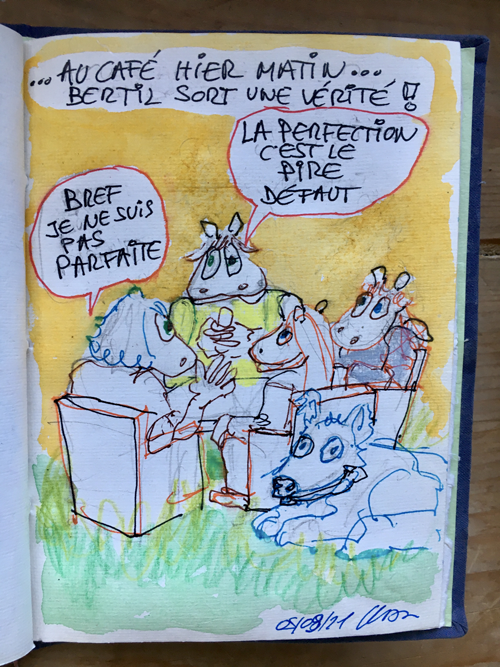 ...AU CAFÉ HIER MATIN...
BERTIL SORT UNE VÉRITÉ !!
LA PERFECTION
C'EST LE
PIRE
DÉFAUT
BREF
JE NE SUIS
PAS
PARFAITE
05/09/21